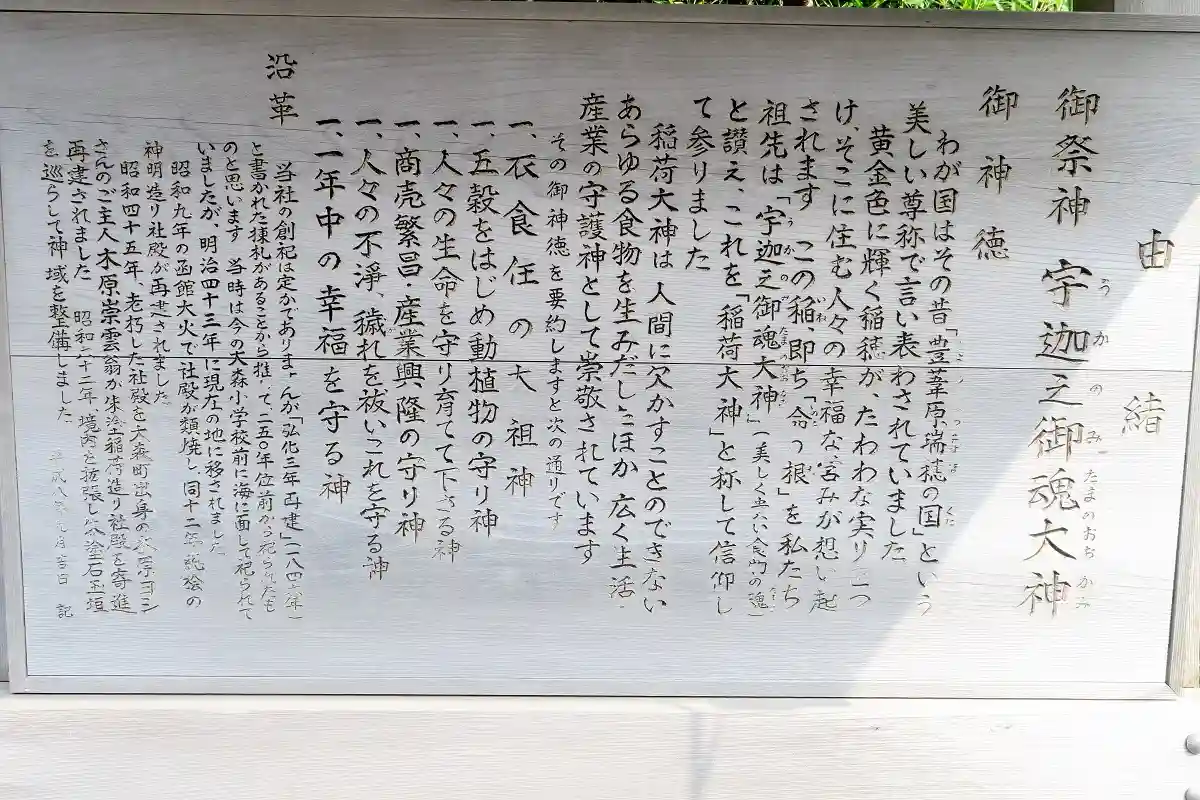 由緒
御祭神 宇迦之御魂大神
うかのみたまのおおかみ
御神徳
わが国はその昔「豊葦原瑞穂の国」という
美しい尊称で言い表わされていました
黄金色に輝く稲穂が、たわわな実りをつ
け、そこに住む人々の幸福な営みが想い起
されます この稲、即ち「命の根」を私たち
祖先は「宇迦之御魂大神」(美しく
と讃え、これを「稲荷大神」と称して信仰し
て参りました
稲荷大神は人間に欠かすことのできない
あらゆる食物を生みだしたほか広く生活・
産業の守護神として崇敬されています
その御神徳を要約しますと次の通りです
一、衣食住の大祖神
一、五穀をはじめ動植物の守り神
一、人々の生命を守り育てて下さる神
一、商売繁昌・産業興隆の守り神
一、人々の不浄、穢れを祓いこれを守る神
一、一年中の幸福を守る神
沿革
当社の創祀は定かでありませんが「弘化三年再建」(一八四六年)
と書かれた棟札があることから推して、二五〇年位前から祀られたも
のと思います 当時は今の大森小学校前に海に面して祀られて
いましたが、明治四十三年に現在の地に移されました
昭和九年の函館大火で社殿が類焼し、同十二年、総桧の
神明造り社殿が再建されました
昭和四十五年、老朽した社殿を大森町出身の木原ヨシ
さんのご主人木原崇雲翁が朱塗稲荷造り社殿を寄進
再建されました 昭和六十二年、境内を拡張し朱塗石玉垣
を巡らして神域を整備しました
平成八年九月吉日 記